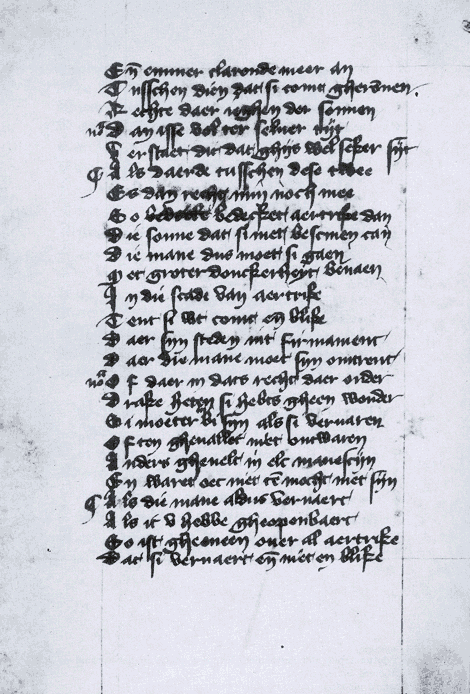 En̄ emmer claronde meer an
Tusschen dien dat si comt gheronnen.
Rechte daer neghen der sonnen
Dan isse vol ter seluer tijt
Verstaet dit dat ghijs wel seker sijt
Als daerde tusschen dese twee
Es dan recht min noch mee
So bedecket aertrike dan
Die sonne dat si niet bescinen can
Die mane dus moet si gaen
Met groter donckerheyt beuaen
In die scade van aertrike
Tent si wt comt en̄ blike
Daer sijn steden int firmament
Daer die mane moet sijn omtrent
Of daer in dats recht daer onder
Drake heten si hebts gheen wonder
Si moeter bi sijn als si veruaren
Often gheuallet niet twaren
Anders gheuelt in elc manescijn
En waret oec niet tē mocht niet sijn
Als die mane aldus vernaert
Als ic v hebbe gheopenbaert
So ist ghemeen ouer al aertrike
Dat si vernaert en̄ niet en blike